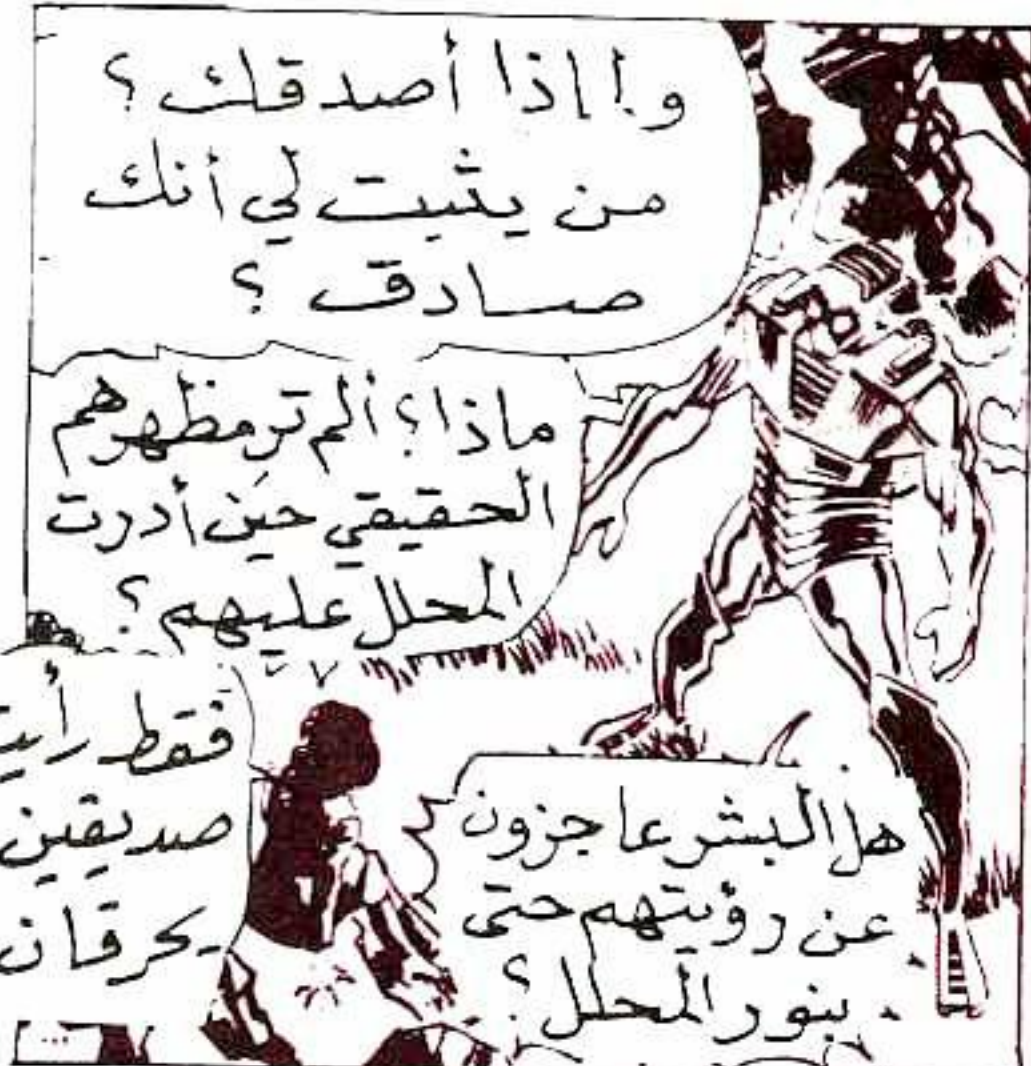 ولماذا أصدقك؟
من يثبت لي أنك
صادق؟
ماذا؟ ألم ترِ مظهرهم
الحقيقي حين أدرت
المحلل عليهم؟
فقط
صديقين
يحرقان
هل البشر عاجزون
عن رؤيتهم حتى
بنور المحلل؟